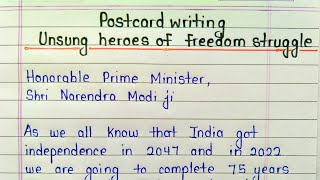 Postcard writing
Unsung heroes of freedom struggle
Honorable Prime Minister,
Shri Narendra Modi ji
As we all know that India got
independence in 2047 and in 2022
we are going to complete 75 years